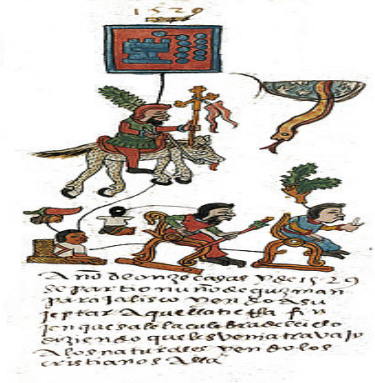 1529
Año de onze casas y de 1529
se partio nuño de guzman
para Jalisco yendo a su
jeptar aquella tierra fin
jen que sale la culebra del cielo
diziendo que les venia travajo
a los naturales yendo los
cristianos alla